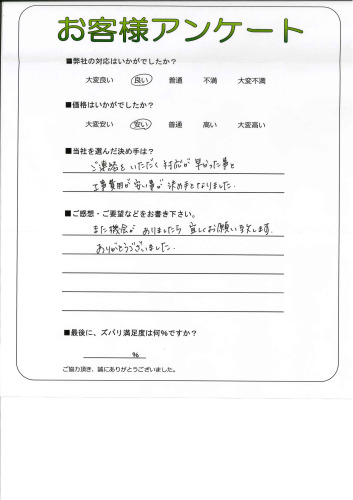 お客様アンケート
■弊社の対応はいかがでしたか?
大変良い 良い 普通 不満 大変不満
■価格はいかがでしたか?
大変安い 安い 普通 高い 大変高い
■当社を選んだ決め手は?
ご連絡をいただく対応が早かった事と
工事費用が安い事が決め手となりました.
■ご感想・ご要望などをお書き下さい。
また機会がありましたら宜しくお願い致します.
ありがとうございました.
■最後に、ズバリ満足度は何%ですか?
%
ご協力頂き、誠にありがとうございました。